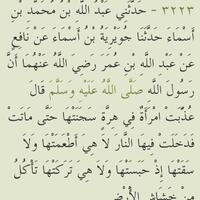 ٣٢٢٣ - حَدَّثَنِي عَبْدُ اللَّهِ بْنُ مُحَمَّدِ بْنِ
أَسْمَاءَ حَدَّثَنَا جُوَيْرِيَةُ بْنُ أَسْمَاءَ عَنْ نَافِعٍ
عَنْ عَبْدِ اللَّهِ بْنِ عُمَرَ رَضِيَ اللَّهُ عَنْهُمَا أَنَّ
رَسُولَ اللَّهِ صَلَّى اللَّهُ عَلَيْهِ وَسَلَّمَ قَالَ
عُذِّبَتْ امْرَأَةٌ فِي هِرَّةٍ سَجَنَتْهَا حَتَّى مَاتَتْ
فَدَخَلَتْ فِيهَا النَّارَ لَا هِيَ أَطْعَمَتْهَا وَلَا
سَقَتْهَا إِذْ حَبَسَتْهَا وَلَا هِيَ تَرَكَتْهَا تَأْكُلُ
مِنْ خَشَاشِ الْأَرْضِ